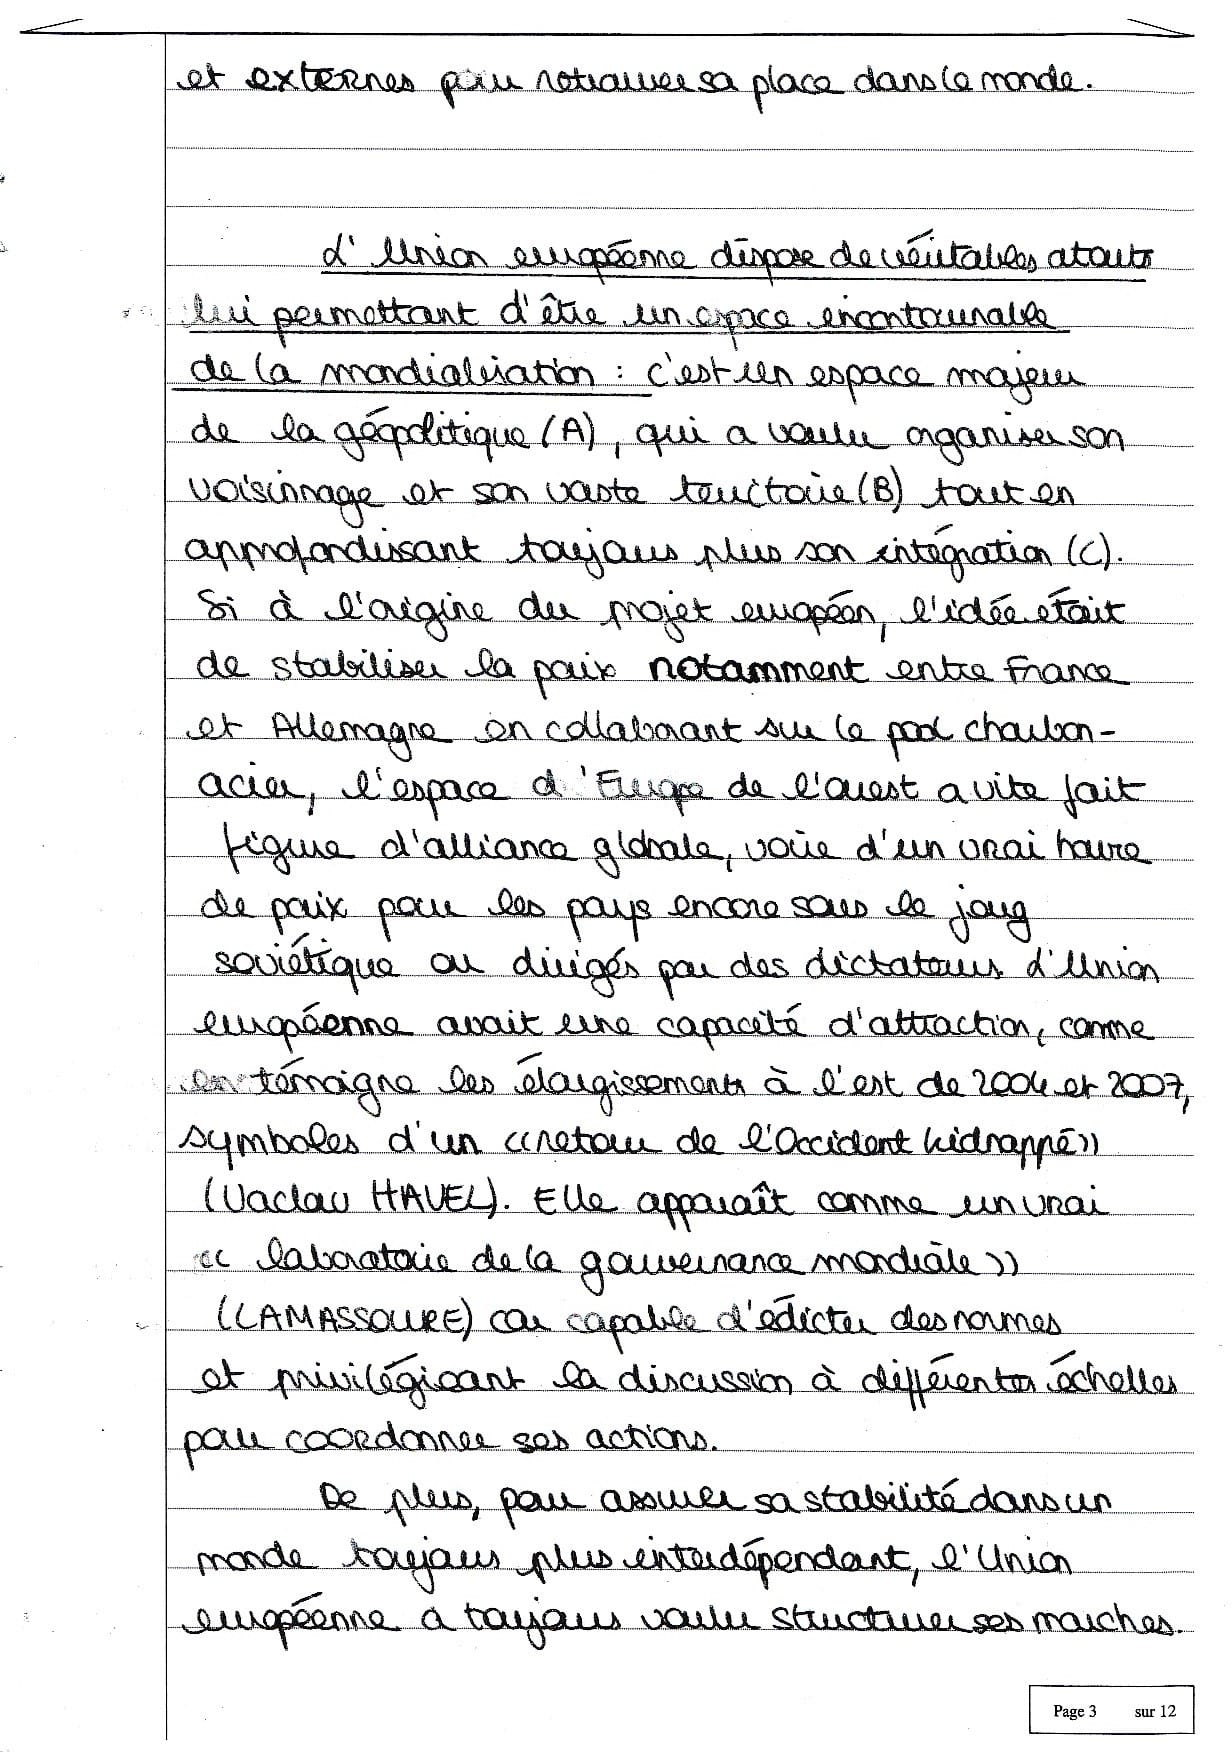 et externes pour retrouver sa place dans le monde.
L'Union européenne dispose de véritables atouts
lui permettant d'être un espace incontournable
de la mondialisation : c'est un espace majeur
de la géopolitique (A), qui a voulu organiser son
voisinnage et son vaste territoire (B) tout en
approfondissant toujours plus son intégration (C).
Si à l'origine du projet européen, l'idée était
de stabiliser la paix notamment entre France
et Allemagne en collaborant sur le pool charbon-
acier, l'espace d'Europe de l'ouest a vite fait
figure d'alliance globale, voire d'un vrai havre
de paix pour les pays encore sous le joug
soviétique ou dirigés par des dictateurs. L'Union
européenne avait une capacité d'attraction, comme
en témoigne les élargissements à l'est de 2004 et 2007,
symboles d'un «retour de l'Occident kidnappé»
(Vaclav HAVEL). Elle apparaît comme un vrai
« laboratoire de la gouvernance mondiale »
(LAMASSOURE) car capable d'édicter des normes
et privilégieant la discussion à différentes échelles
pour coordonner ses actions.
De plus, pour assurer sa stabilité dans un
monde toujours plus interdépendant, l'Union
européenne a toujours voulu structurer ses marches.
Page 3 sur 12